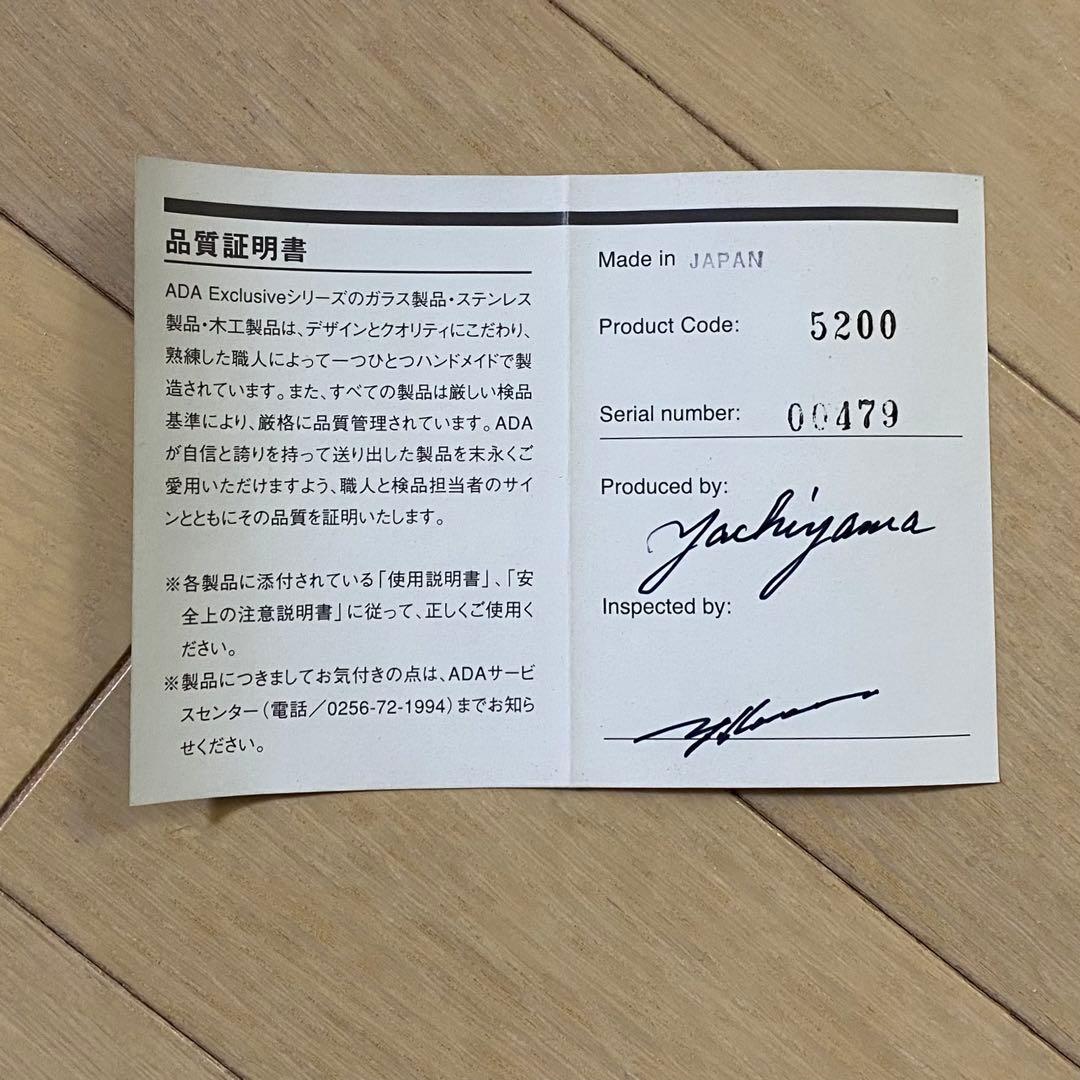 品質証明書
ADA Exclusiveシリーズのガラス製品・ステンレス
製品・木工製品は、デザインとクオリティにこだわり、
熟練した職人によって一つひとつハンドメイドで製
造されています。また、すべての製品は厳しい検品
基準により、厳格に品質管理されています。ADA
が自信と誇りを持って送り出した製品を末永くご
愛用いただけますよう、職人と検品担当者のサイ
ンとともにその品質を証明いたします。
※各製品に添付されている「使用説明書」、「安
全上の注意説明書」に従って、正しくご使用く
ださい。
※製品につきましてお気付きの点は、ADAサービ
スセンター(電話／0256-72-1994)までお知ら
せください。
Made in JAPAN
Product Code: 5200
Serial number: 00479
Produced by:
Yachiyama
Inspected by: